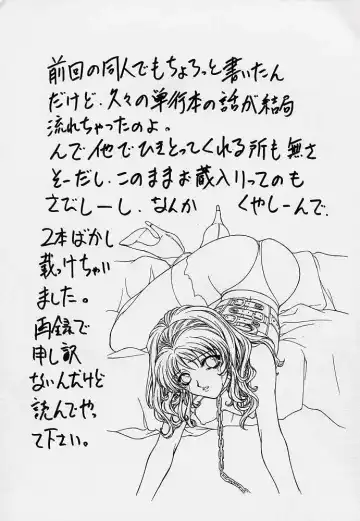 前回の同人でもちょろっと書いたん
だけど、久々の単行本の話が結局
流れちゃったのよ。
んで他でひきとってくれる所も無さ
そーだし、このままお蔵入りってのも
さびしーし、なんか くやしーんで、
2本ばかし
載っけちゃい
ました。
再録で
申し訳
ないんだけど
読んでやっ
て下さい。